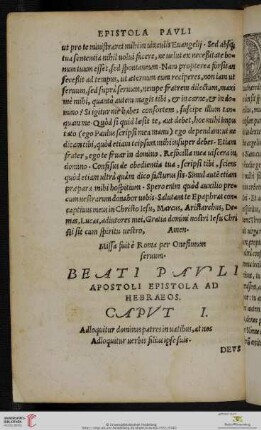 EPISTOLA PAVLI
ut pro te ministraret mihi in uinculis Euangelij. Sed absq;
tua sententia nihil uolui facere, ne ueluti ex necessitate bo
num tuum esset, sed spontaneum. Nam propterea forsitan
secessit ad tempus, ut æternum eum reciperes, non iam ut
seruum, sed supra seruum, nempe fratrem dilectum, maxi
me mihi, quanto autem magis tibi, & in carne, & in do
mino? Si igitur me habes consortem, suscipe illum tan
quam me. Quòd si quid læsit te, aut debet, hoc mihi impu
tato (ego Paulus scripsi mea manu) ego dependam: ut ne
dicam tibi, quòd teipsum mihi insuper debes. Etiam
frater, ego te fruar in domino. Refocilla mea uiscera in
domino. Confisus de obedientia tua, scripsi tibi, sciens
quòd etiam ultra quàm dico facturus sis. Simul autē etiam
præpara mihi hospitium. Spero enim quòd auxilio preca
tionum uestrarum donabor uobis. Salutant te Epaphras con
captiuus meus in Christo Iesu, Marcus, Aristarchus, De
mas, Lucas, adiutores mei. Gratia domini nostri Iesu Chri
sti sit cum spiritu uestro, Amen.
Missa fuit è Roma per Onesimum
seruum.
BEATI PAVLI
APOSTOLI EPISTOLA AD
HEBRAEOS.
CAPVT I.
Adloquitur dominus patres in uatibus, at nos
Adloquitur uerbis filius ipse suis.
DEVS